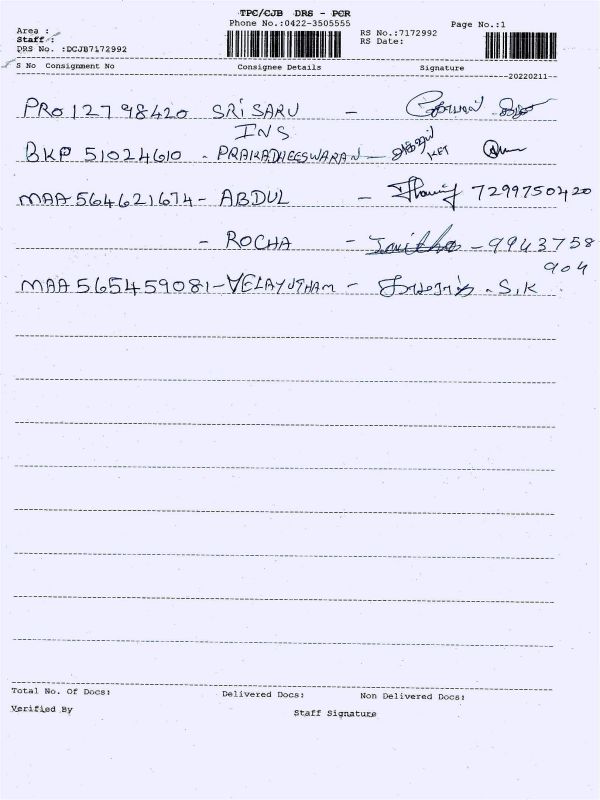 TPC/CJB DRS - PCR
Phone No.:0422-3505555
Page No.:1
Area :
Staff :
DRS No. :DCJB7172992
RS No.:7172992
RS Date:
S No Consignment No Consignee Details Signature
20220211
PRO12798420 SRI SARU -
INS
BKP 51024610 - PRAIKADHEESWARAN -
MAA 564621674 - ABDUL - 7299750420
- ROCHA - - 9943758
904
MAA 565459081 - VELAYUTHAM - - S.K
Total No. Of Docs: Delivered Docs: Non Delivered Docs:
Verified By Staff Signature